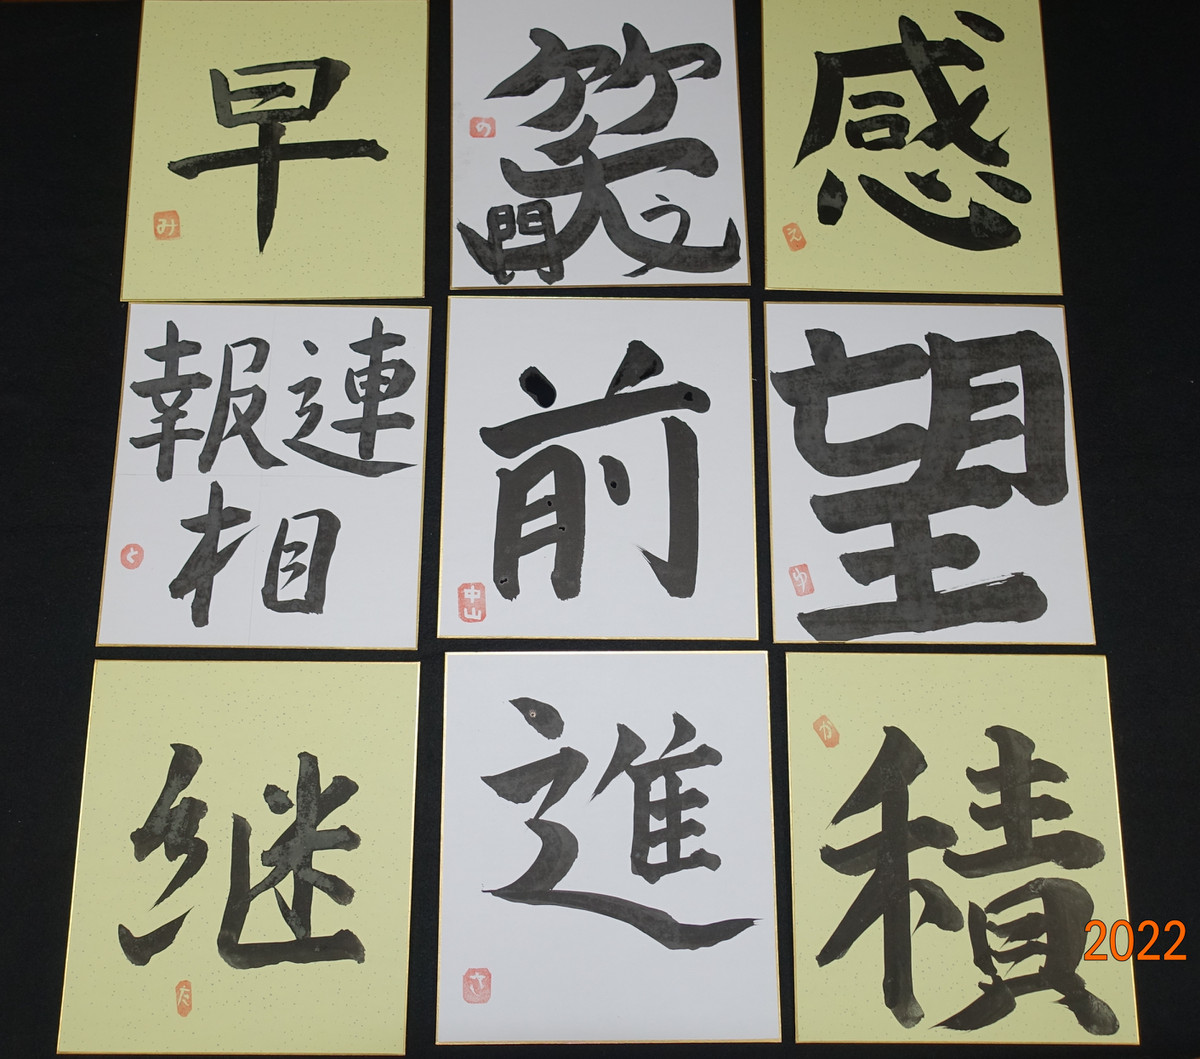 早
み
笑
門
う
の
感
え
報連
相
と
前
中山
望
ゆ
継
た
進
さ
積
か
2022